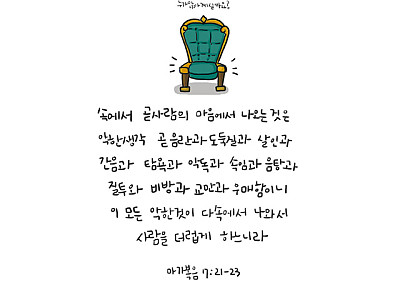 '속에서 곧사람의 마음에서 나오는 것은
악한생각 곧 음란과 도둑질과 살인과
간음과 탐욕과 악독과 속임과 음탕과
질투와 비방과 교만과 우매함이니
이 모든 악한것이 다속에서 나와서
사람을 더럽게 하느니라
마가복음 7:21-23